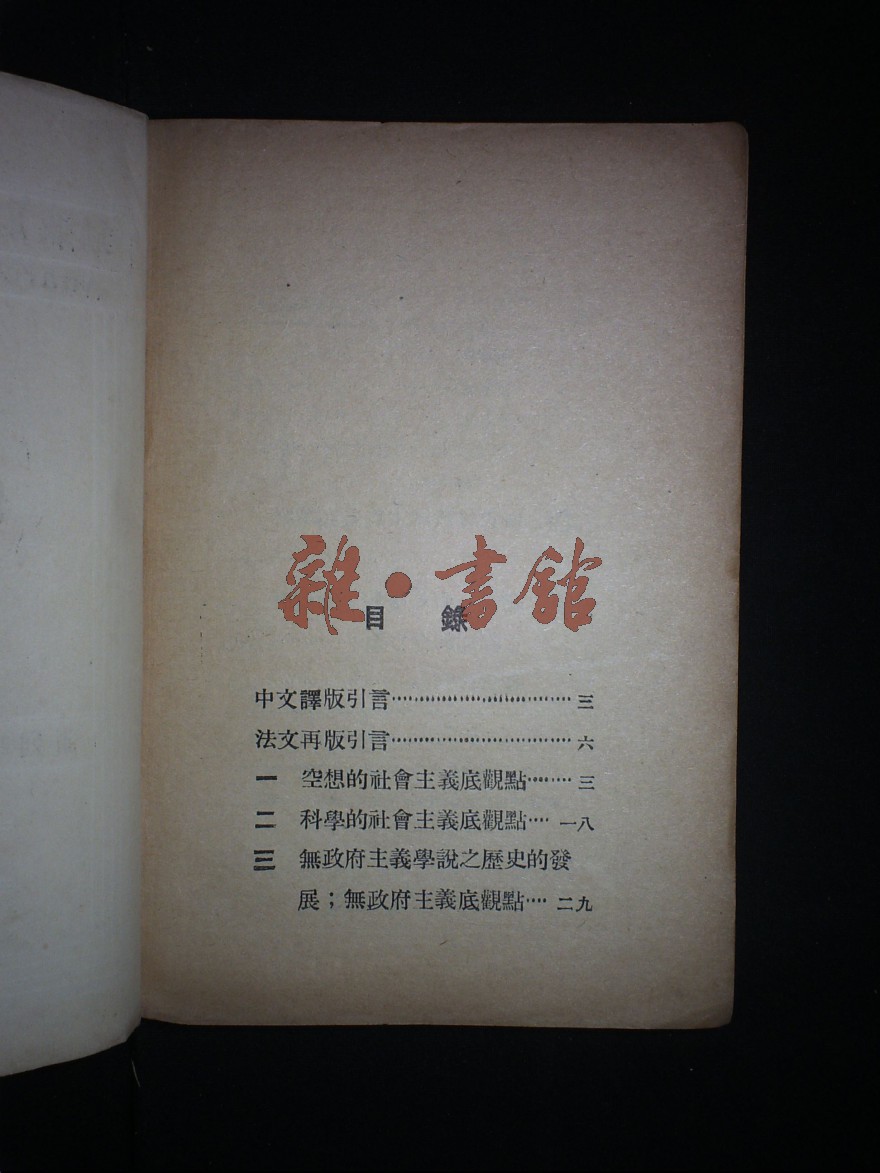 雜・書館
目錄
中文譯版引言………………………… 三
法文再版引言………………………… 六
一 空想的社會主義底觀點……… 三
二 科學的社會主義底觀點…… 一八
三 無政府主義學說之歷史的發
展；無政府主義底觀點…… 二九